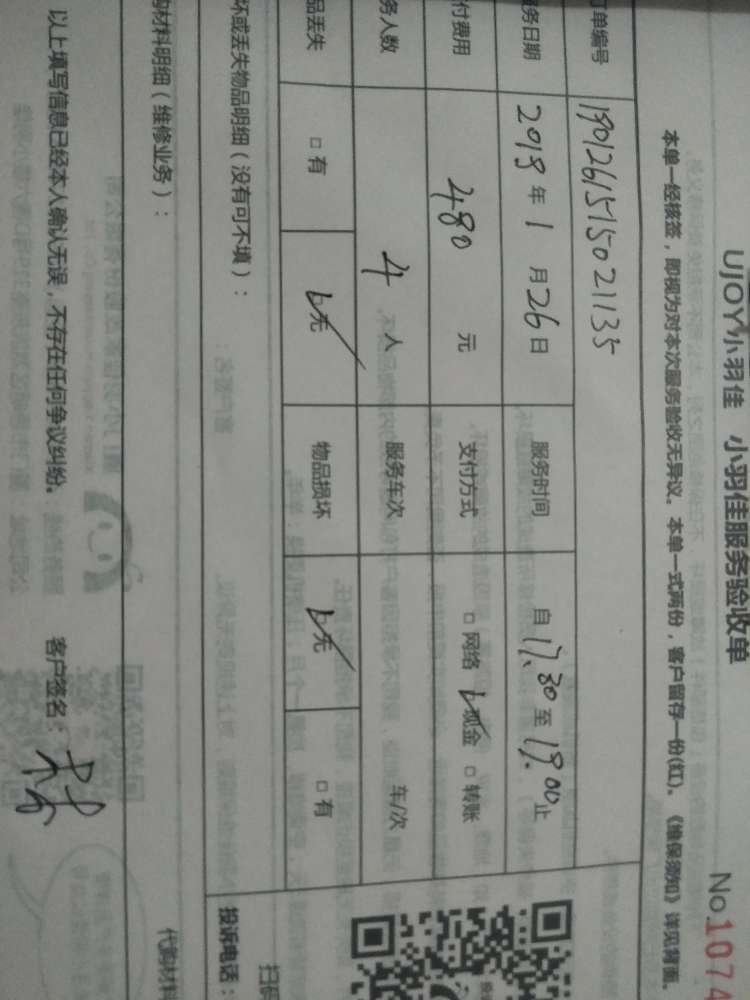 UJOY小羽佳 小羽佳服务验收单
No.1074
本单一经核签，即视为对本次服务验收无异议。本单一式两份，客户留存一份(红)。《维保须知》详见背面。
订单编号 190126151502113５
服务日期 2019年1月26日 服务时间 自17.30至19.00止
付费用 480元 支付方式 □网络 ☑现金 □转账
务人数 4人 服务车次 车/次
品丢失 □有 ☑无 物品损坏 ☑无 □有
坏或丢失物品明细（没有可不填）：
投诉电话：
扫码
购材料明细（维修业务）：
代购材料
以上填写信息已经本人确认无误，不存在任何争议纠纷。 客户签名：